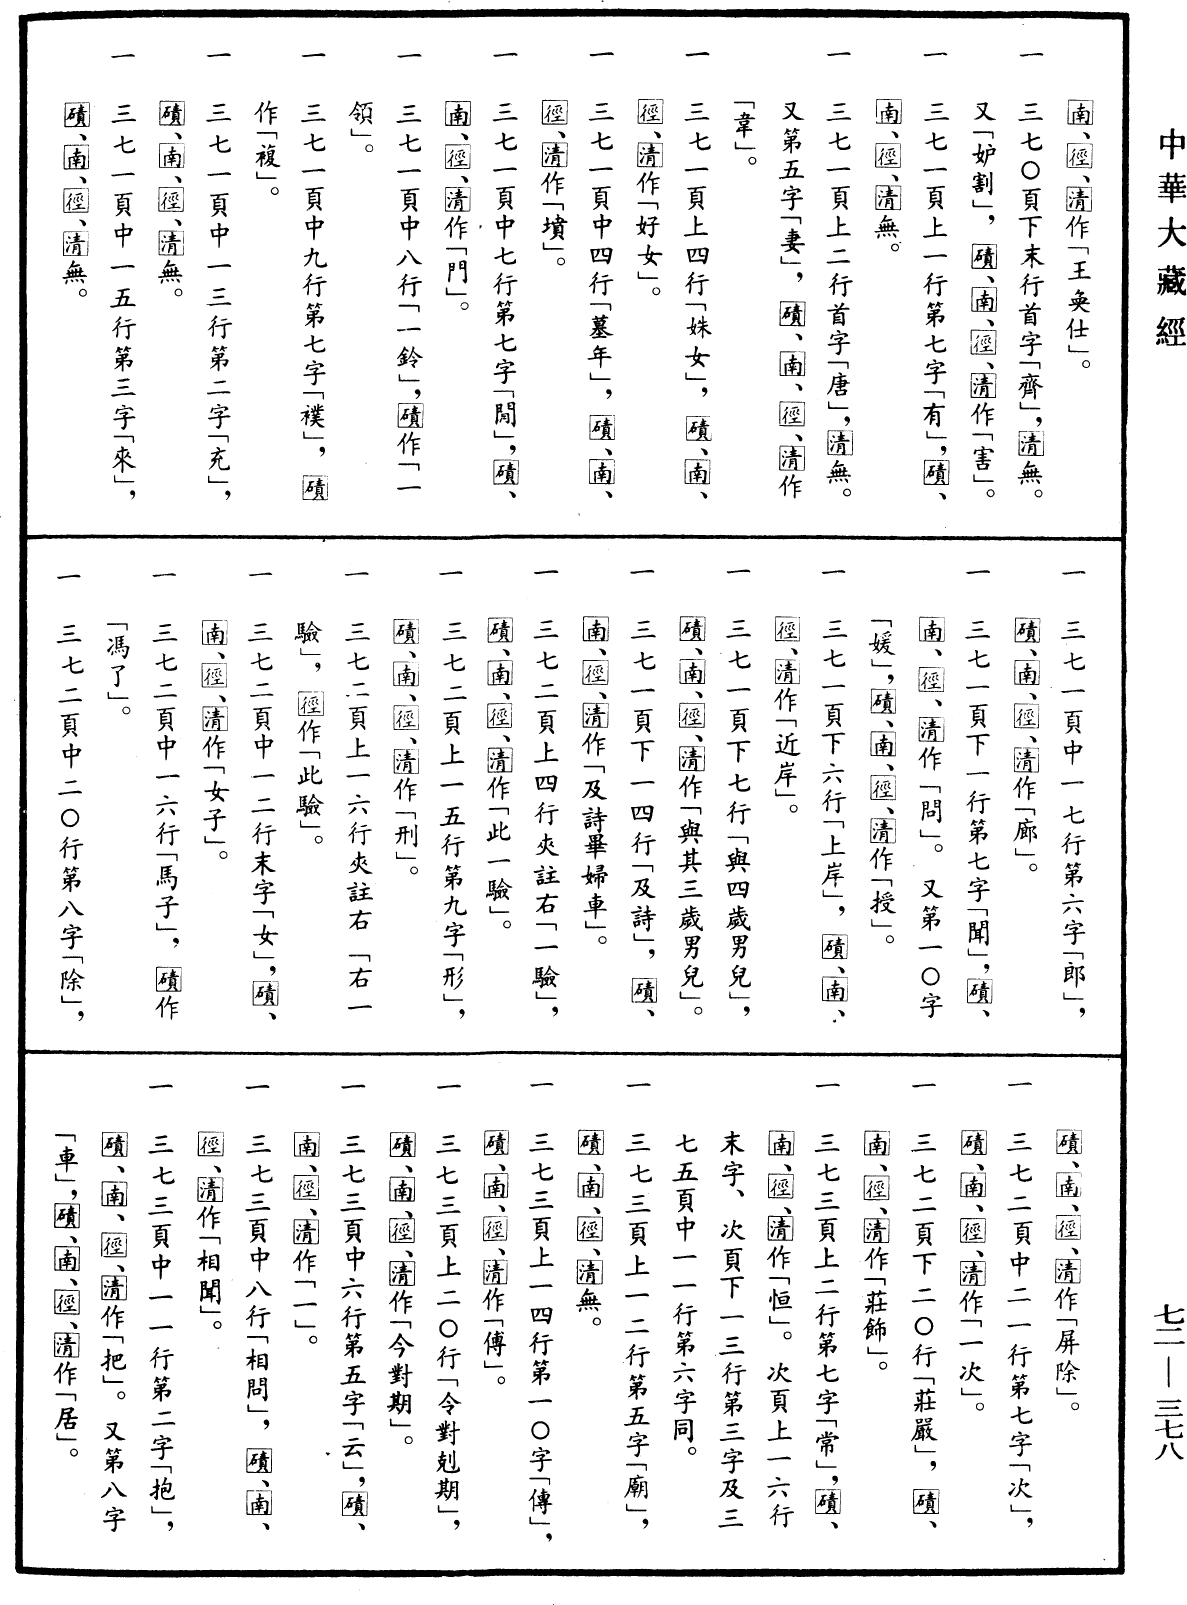 中華大藏經
南、徑、清作「王奐仕」。
一　三七〇頁下末行首字「齊」，清無。
又「妒割」，磧、南、徑、清作「害」。
一　三七一頁上一行第七字「有」，磧、
南、徑、清無。
一　三七一頁上二行首字「唐」，清無。
又第五字「妻」，磧、南、徑、清作
「韋」。
一　三七一頁上四行「姝女」，磧、南、
徑、清作「好女」。
一　三七一頁中四行「墓年」，磧、南、
徑、清作「墳」。
一　三七一頁中七行第七字「閒」，磧、
南、徑、清作「門」。
一　三七一頁中八行「一鈴」，磧作「一
領」。
一　三七一頁中九行第七字「襆」，磧
作「複」。
一　三七一頁中一三行第二字「充」，
磧、南、徑、清無。
一　三七一頁中一五行第三字「來」，
磧、南、徑、清無。
一　三七一頁中一七行第六字「郎」，
磧、南、徑、清作「廊」。
一　三七一頁下一行第七字「聞」，磧、
南、徑、清作「問」。又第一〇字
「媛」，磧、南、徑、清作「授」。
一　三七一頁下六行「上岸」，磧、南、
徑、清作「近岸」。
一　三七一頁下七行「與四歲男兒」，
磧、南、徑、清作「與其三歲男兒」。
一　三七一頁下一四行「及詩」，磧、
南、徑、清作「及詩畢婦車」。
一　三七二頁上四行夾註右「一驗」，
磧、南、徑、清作「此一驗」。
一　三七二頁上一五行第九字「形」，
磧、南、徑、清作「刑」。
一　三七二頁上一六行夾註右「右一
驗」，徑作「此驗」。
一　三七二頁中一二行末字「女」，磧、
南、徑、清作「女子」。
一　三七二頁中一六行「馬子」，磧作
「馮了」。
一　三七二頁中二〇行第八字「除」，
磧、南、徑、清作「屏除」。
一　三七二頁中二一行第七字「次」，
磧、南、徑、清作「一次」。
一　三七二頁下二〇行「莊嚴」，磧、
南、徑、清作「莊飾」。
一　三七三頁上二行第七字「常」，磧、
南、徑、清作「恒」。次頁上一六行
末字、次頁下一三行第三字及三
七五頁中一一行第六字同。
一　三七三頁上一二行第五字「廟」，
磧、南、徑、清無。
一　三七三頁上一四行第一〇字「傳」，
磧、南、徑、清作「傅」。
一　三七三頁上二〇行「令對剋期」，
磧、南、徑、清作「今對期」。
一　三七三頁中六行第五字「云」，磧、
南、徑、清作「一」。
一　三七三頁中八行「相問」，磧、南、
徑、清作「相聞」。
一　三七三頁中一一行第二字「抱」，
磧、南、徑、清作「把」。又第八字
「車」，磧、南、徑、清作「居」。
七二—三七八